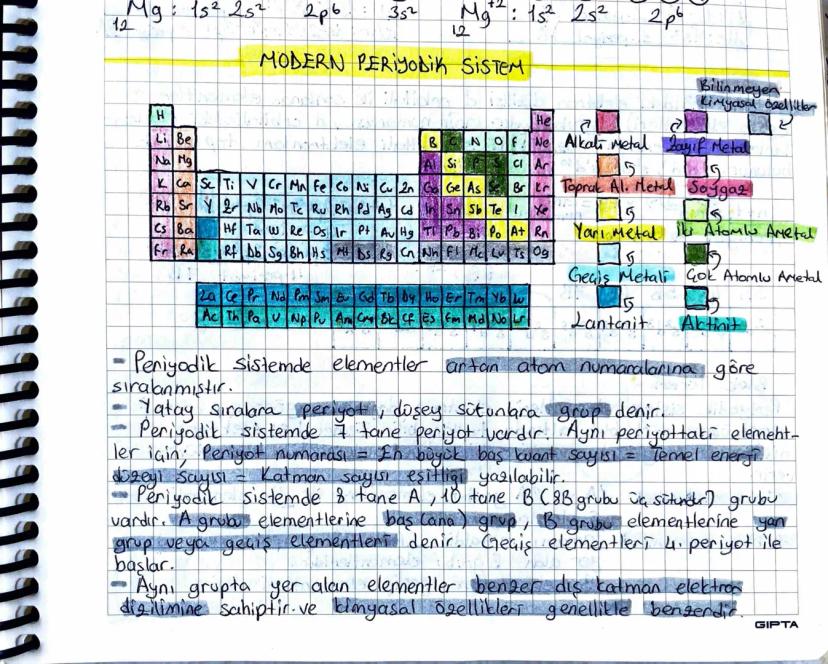 12Mg: 1s² 2s² 2p⁶ 3s² 12Mg⁺²: 1s² 2s² 2p⁶
MODERN PERİYODİK SİSTEM
Bilinmeyen
Kimyasal özellikler
H He
Li Be B C N O F Ne
Na Mg Al Si P S Cl Ar
K Ca Sc Ti V Cr Mn Fe Co Ni Cu Zn Ga Ge As Se Br Kr
Rb Sr Y Zr Nb Mo Tc Ru Rh Pd Ag Cd In Sn Sb Te I Xe
Cs Ba Hf Ta W Re Os Ir Pt Au Hg Tl Pb Bi Po At Rn
Fr Ra Rf Db Sg Bh Hs Mt Ds Rg Cn Nh Fl Mc Lv Ts Og
La Ce Pr Nd Pm Sm Eu Gd Tb Dy Ho Er Tm Yb Lu
Ac Th Pa U Np Pu Am Cm Bk Cf Es Fm Md No Lr
Alkali Metal Zayıf Metal
Toprak Al. Metal Soygaz
Yarı Metal İki Atomlu Ametal
Geçiş Metali Çok Atomlu Ametal
Lantanit Aktinit
- Periyodik sistemde elementler artan atom numaralarına göre
sıralanmıştır.
- Yatay sıralara periyot, düşey sütunlara grup denir.
- Periyodik sistemde 7 tane periyot vardır. Aynı periyottaki element-
ler için; Periyot numarası = En büyük baş kuant sayısı = Temel enerji
düzeyi sayısı = Katman sayısı eşitliği yazılabilir.
- Periyodik sistemde 8 tane A, 10 tane B (8B grubu üç sütundur) grubu
vardır. A grubu elementlerine baş (ana) grup, B grubu elementlerine yan
grup veya geçiş elementleri denir. Geçiş elementleri 4. periyot ile
başlar.
- Aynı grupta yer alan elementler benzer dış katman elektron
dizilimine sahiptir ve kimyasal özellikleri genellikle benzerdir.
GIPTA